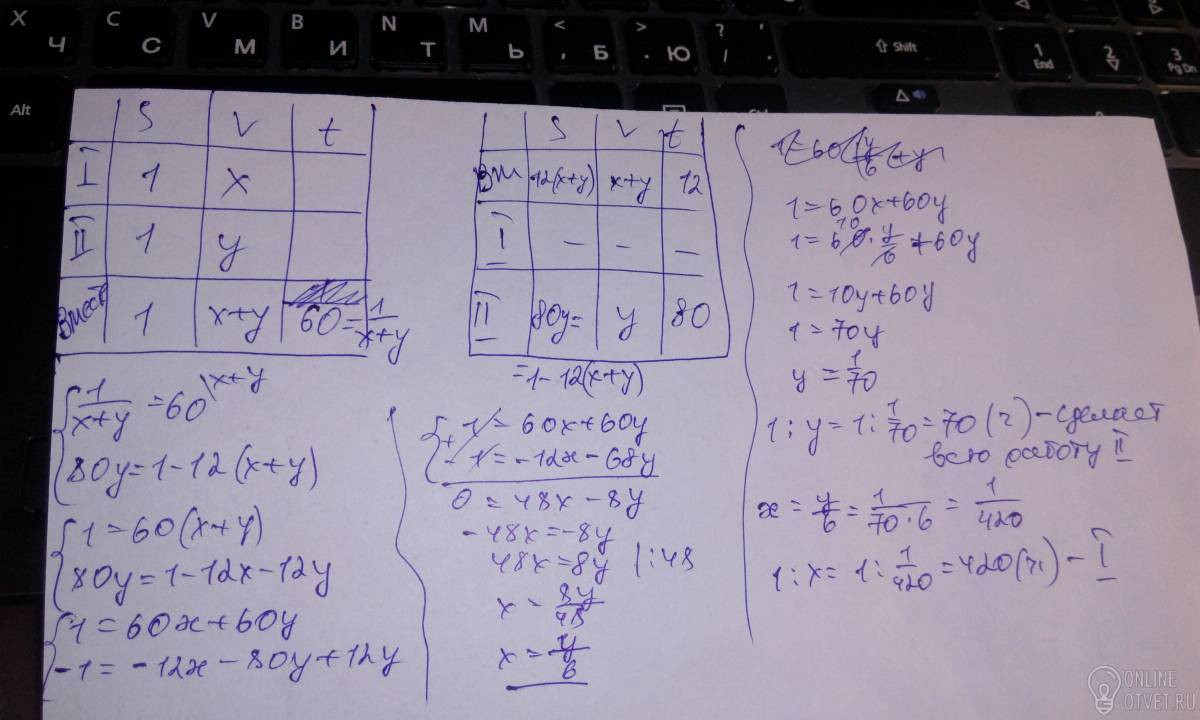 X Ч
C С
V М
B И
N Т
M Ь
< , Б
> . Ю
? / .
⇧ Shift
1 End
2
3 Pg Dn
Alt
S V t
I 1 x
II 1 y
Вмест 1 x+y 60=1/(x+y)
{ 1/(x+y) = 60 \x+y
80y=1-12(x+y)
{ 1=60(x+y)
80y=1-12x-12y
{ 1=60x+60y
-1=-12x-80y+12y
S V t
Вм 12(x+y) x+y 12
I - - -
II 80y= y 80
=1-12(x+y)
{ + 1=60x+60y
-1=-12x-68y
0=48x-8y
-48x=-8y
48x=8y |:48
x=8y/48
x=y/6
1=60x+60y
1=60·y/6+60y
10
1=10y+60y
1=70y
y=1/70
1:y=1:1/70=70(ч)-сделает
всю работу II
x=y/6=1/(70·6)=1/420
1:x=1:1/420=420(ч)-I
ONLINE
OTVET.RU